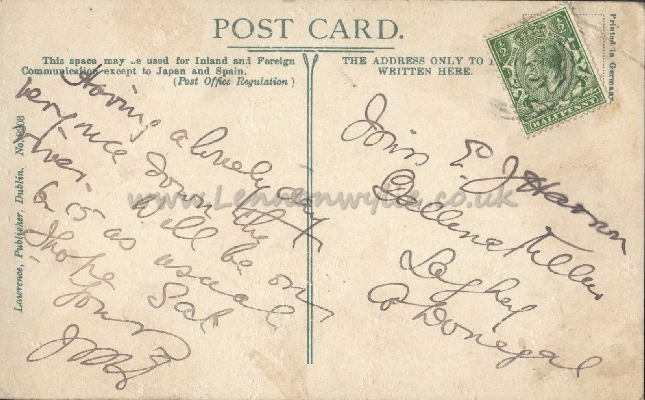 POST CARD.
This space may be used for Inland and Foreign
Communication except to Japan and Spain.
(Post Office Regulation)
THE ADDRESS ONLY TO
WRITTEN HERE.
Printed in Germany.
HALFPENNY
Lawrence, Publisher, Dublin. No.
Having a lovely day
very nice down the
river. Will be on
6 15 as usual
I hope Sat
Yours
Miss E. J. Hannon
Laghey
Co Donegal
www.Lennonwylie.co.uk